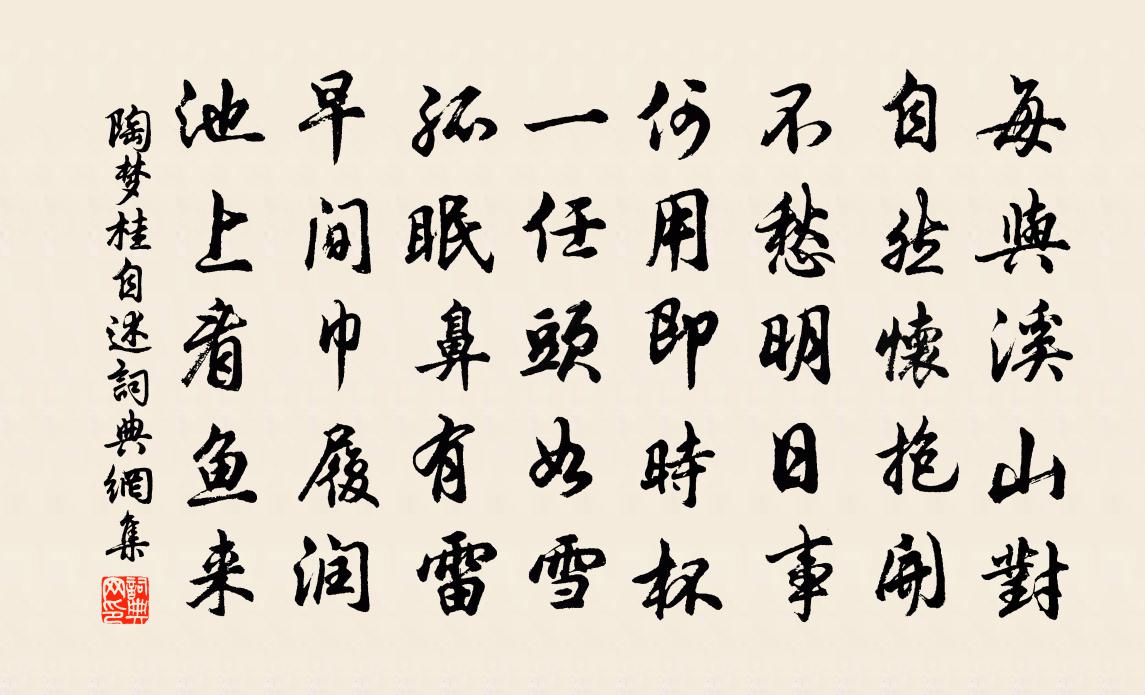 每與溪山對
自然懷抱開
不愁明日事
何用即時杯
一任頭如雪
孤眠鼻有雷
早間巾履润
池上看鱼来
陶梦桂自述詞典網集
詞典網印